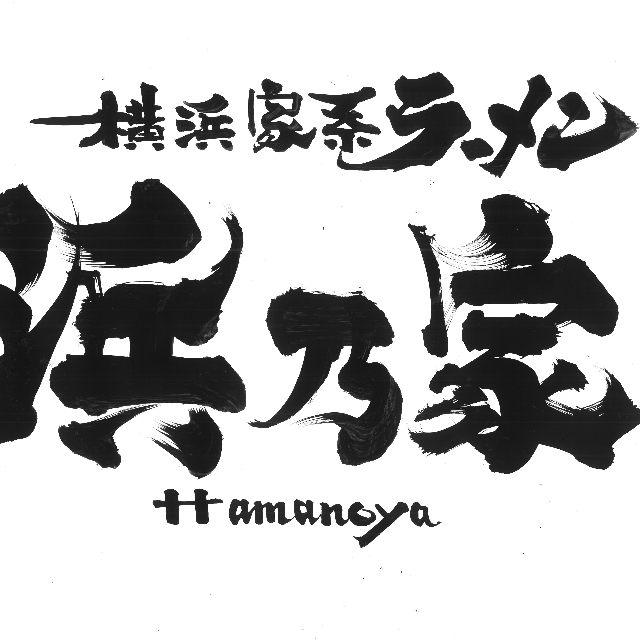 横浜家系ラーメン
浜乃家
Hamanoya